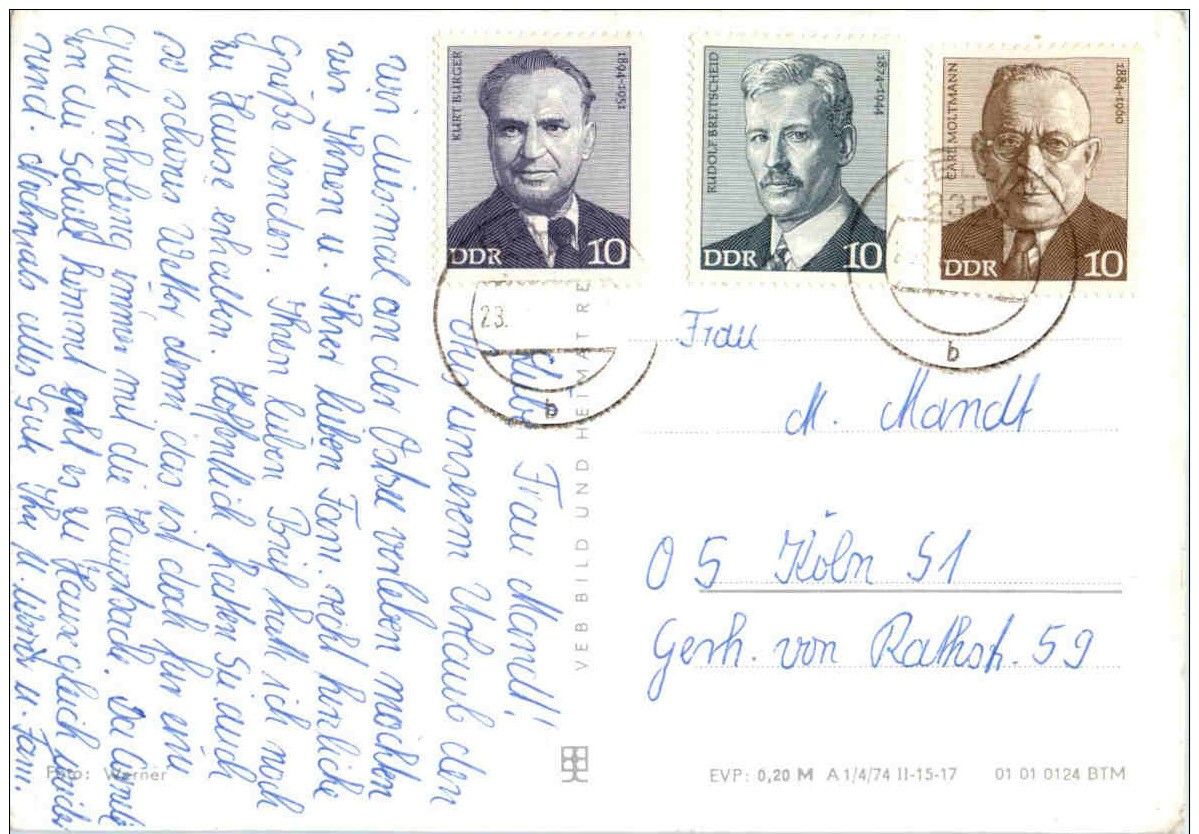 KURT BÜRGER
1894-1951
DDR 10
RUDOLF BREITSCHEID
1874-1944
DDR 10
CARL MOLTMANN
1884-1960
DDR 10
23.
b
b
Liebe Frau Mandt!
unserem Urlaub den
wir diesmal an der Ostsee verleben möchten
wir Ihnen u. Ihrer lieben Fam. recht herzliche
Grüße senden. Ihren lieben Brief hatte ich noch
zu Hause erhalten. Hoffentlich hatten Sie auch
so schönes Wetter denn das ist doch für eine
gute Erholung immer mit die Hauptsache. Da
die Schule kommt geht es zu Hause gleich wieder
rund. Nochmals alles Gute Ihre u. Fam.
VEB BILD UND HEIMAT RE
Frau
M. Mandt
05 Köln 51
Gerh. von Rathstr. 59
Foto: Werner
EVP: 0,20 M A 1/4/74 II-15-17 01 01 0124 BTM